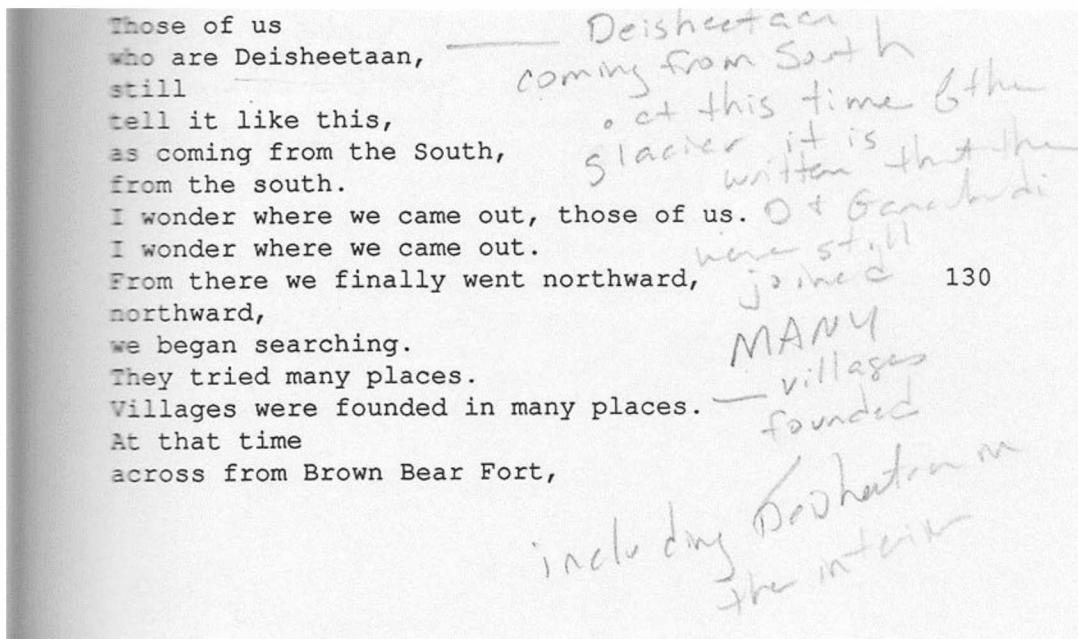 Those of us
who are Deisheetaan,
still
tell it like this,
as coming from the South,
from the south.
I wonder where we came out, those of us.
I wonder where we came out.
From there we finally went northward, 130
northward,
we began searching.
They tried many places.
Villages were founded in many places.
At that time
across from Brown Bear Fort,
Deisheetaan
coming from South
at this time the
glacier it is
written that the
D +
were still
joined
MANY
villages
founded
including Deisheetaan in
the interior